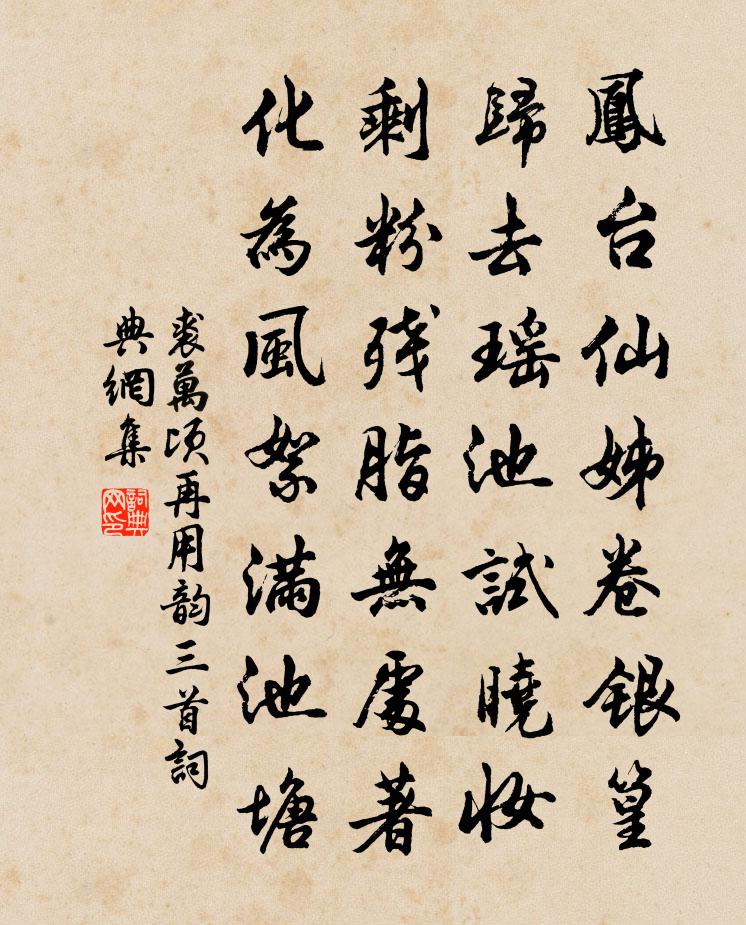 鳳台仙姊卷銀篁
歸去瑶池試曉妝
剩粉残脂無處著
化為風絮满池塘
裘萬頃再用韵三首詞
典網集
詞典网印